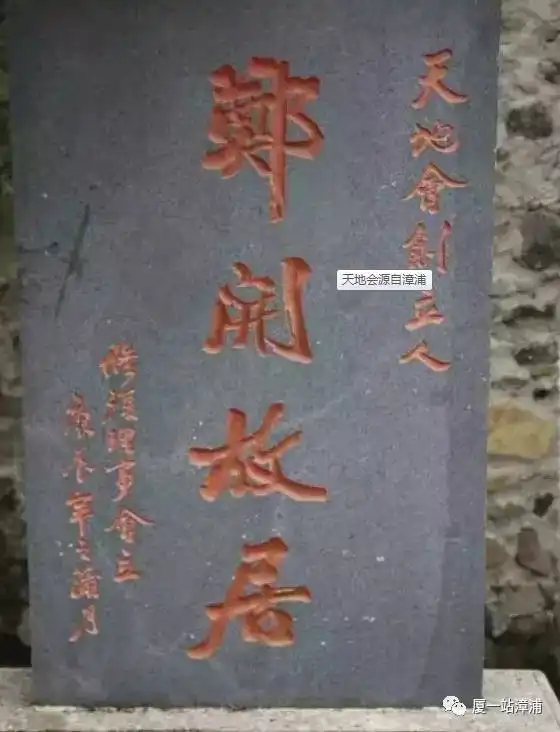 天地會創立人
鄭開故居
修復理事會立
年之蒲月
天地会源自漳浦
厦一站漳浦